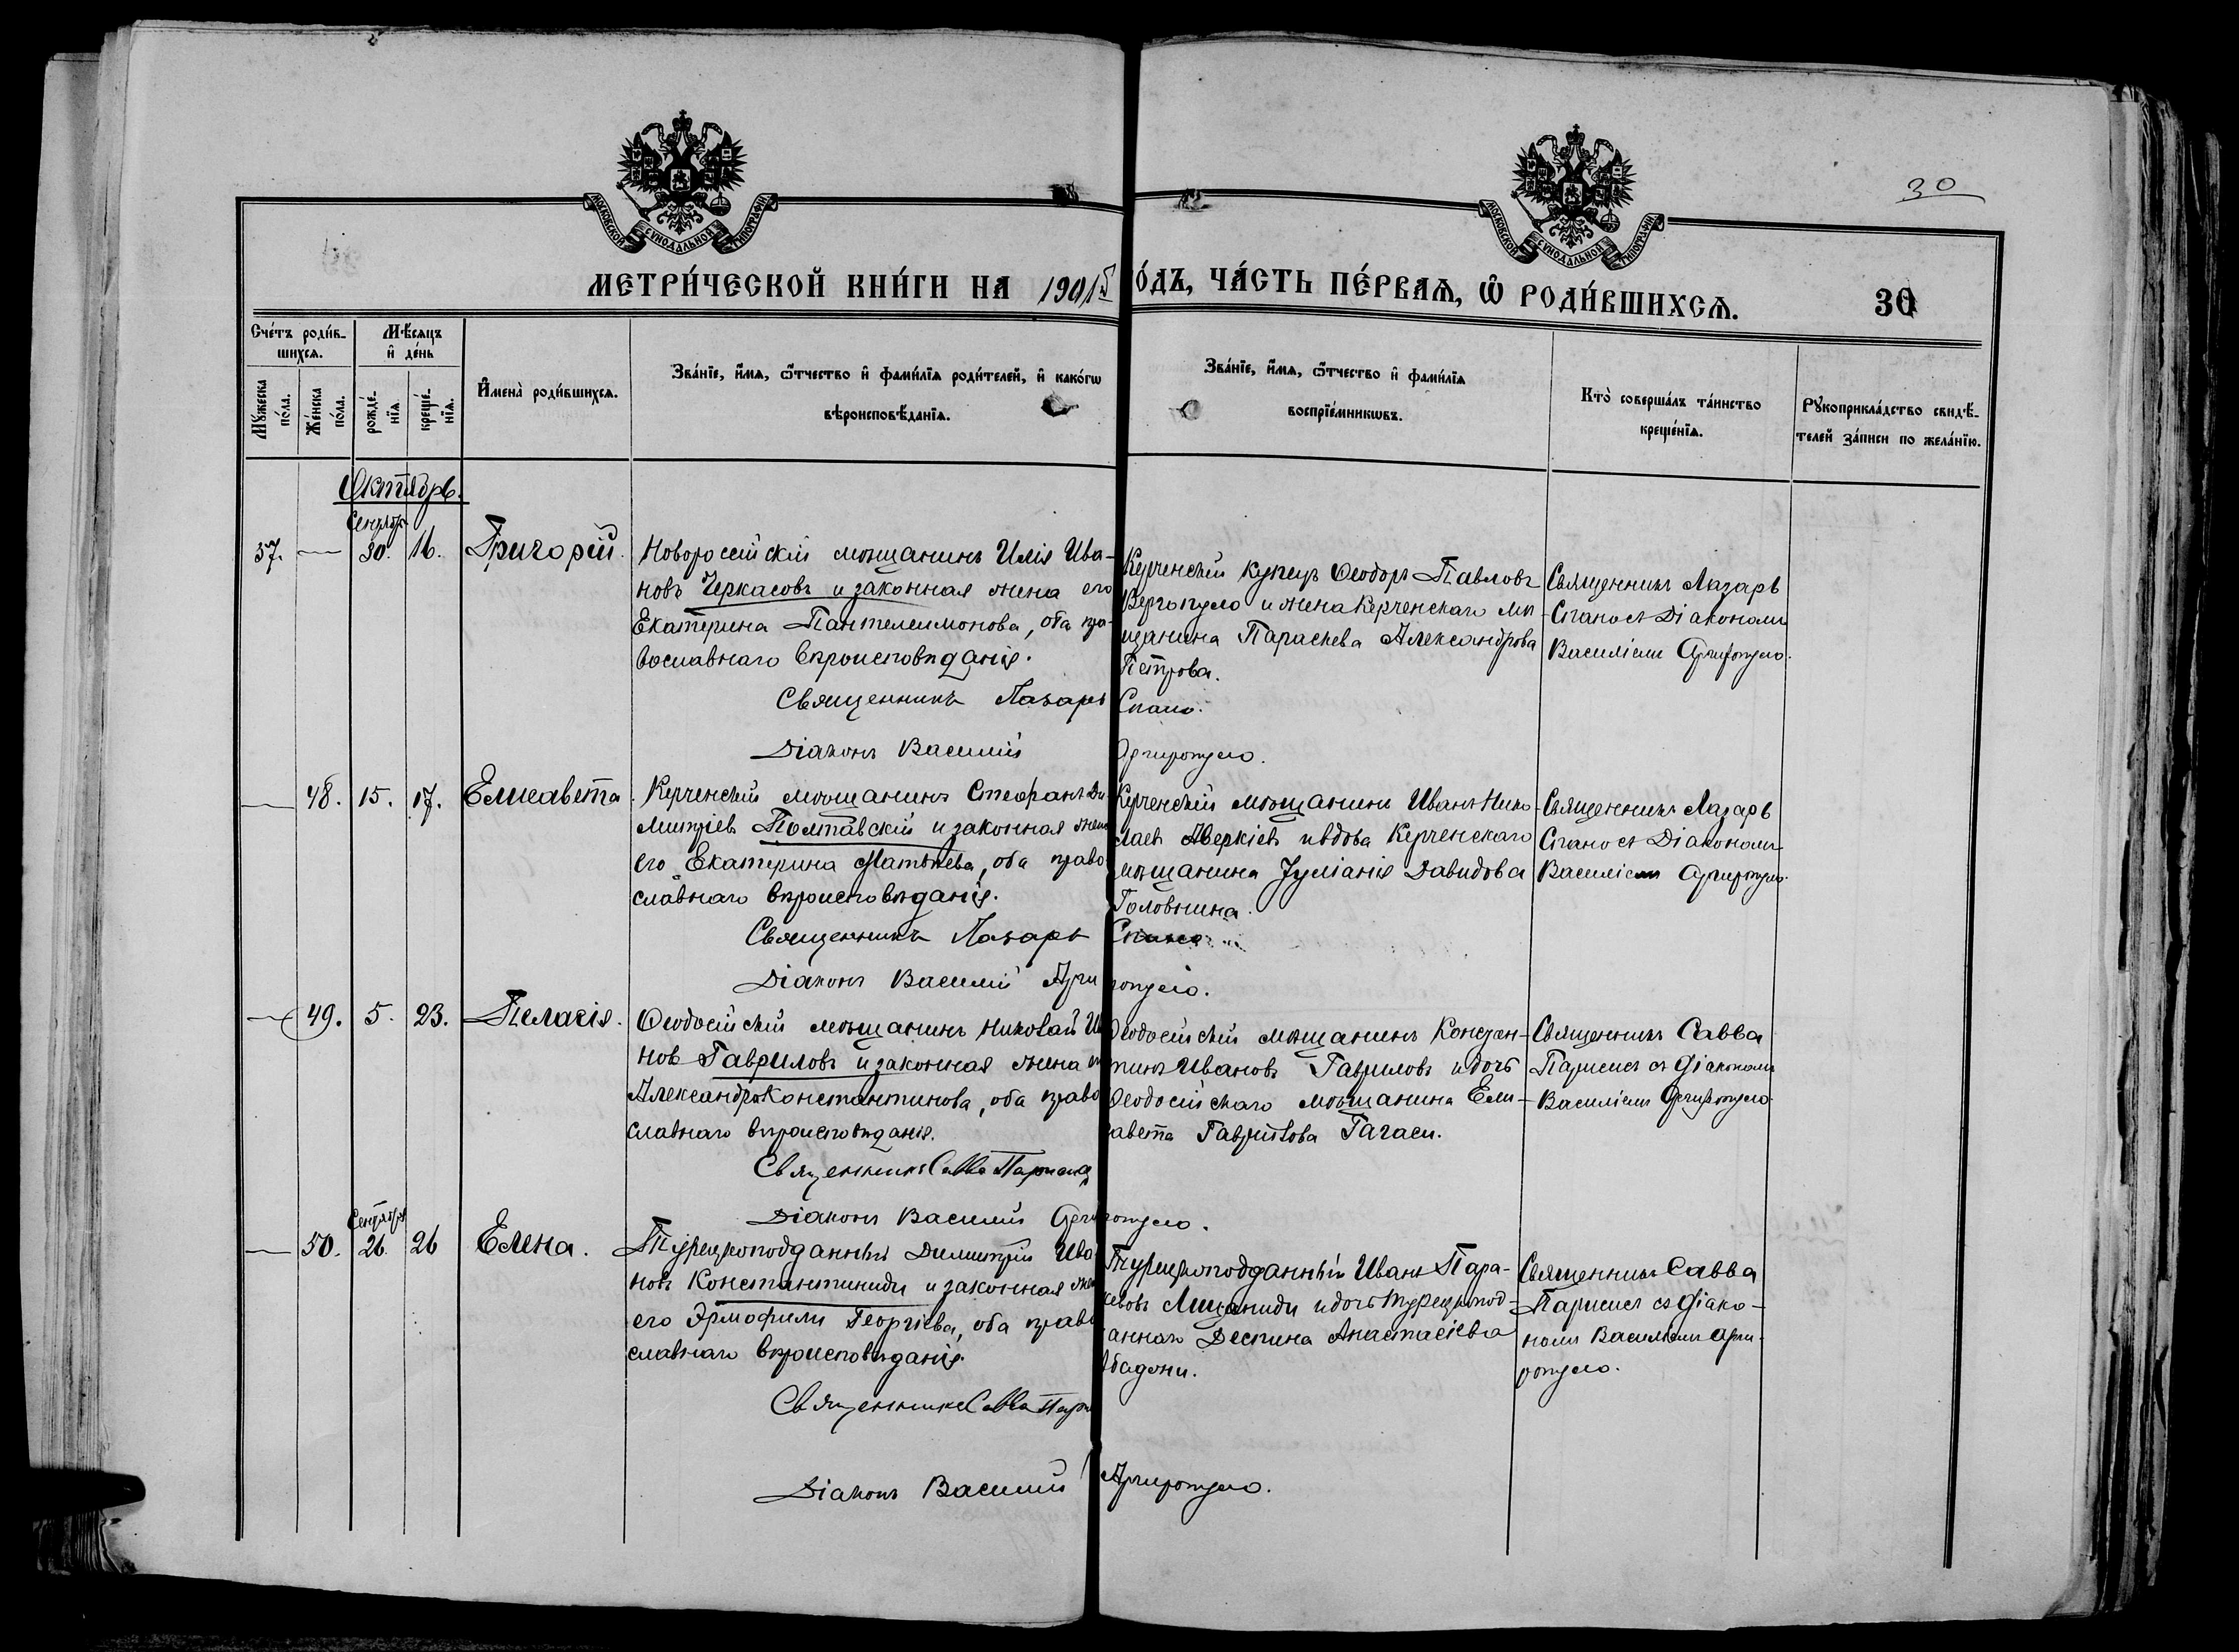 МОСКОВСКОЙ СУНОДАЛЬНОЙ ТИПОГРАФІИ
МОСКОВСКОЙ СУНОДАЛЬНОЙ ТИПОГРАФІИ
30
МЕТРИ́ЧЕСКОЙ КНИ́ГИ НА 1901й
О́ДЪ, ЧА́СТЬ ПЕ́РВАѦ, Ѡ҆ РОДИ́ВШИХСѦ.
30
Сче́тъ роди́в-
шихсѧ.
Мѣ́сѧцъ
и҆ де́нь
Мꙋ́жеска
по́ла.
Же́нска
по́ла.
рожде́-
нїѧ
креще́-
нїѧ.
И҆мена̀ роди́вшихсѧ.
Зва́нїе, и҆́мѧ, ѻ҆́тчество и҆ фами́лїѧ роди́телей, и҆ како́гѡ
вѣроисповѣ́данїѧ.
Зва́нїе, и҆́мѧ, ѻ҆́тчество и҆ фами́лїѧ
воспрїе́мникѡвъ.
Кто̀ соверша́лъ та́инство
креще́нїѧ.
Рꙋкоприкла́дство свидѣ́-
телей за́писи по жела́нїю.
Октябрь.
Сентябр
37. — 30. 16. Григорій.
Новоросійскій мѣщанинъ Илія Ива-
новъ Черкасовъ и законная жена его
Екатерина Пантелеимонова, оба пра-
вославнаго вѣроисповѣданія.
Священникъ Лазарь
Діаконъ Василій
Керченскій купецъ Ѳеодоръ Павловъ
Вергопуло и жена Керченскаго мѣ-
щанина Параскева Александрова
Петрова.
Спано.
Аргиропуло.
Священникъ Лазарь
Спано съ Діакономъ
Василіемъ Аргиропуло.
— 48. 15. 17. Елисавета.
Керченскій мѣщанинъ Стефанъ Ди-
митріевъ Полтавскій и законная жена
его Екатерина Матѳеева, оба право
славнаго вѣроисповѣданія.
Священникъ Лазарь
Діаконъ Василій Арги
Керченскій мѣщанинъ Иванъ Нико-
лаевъ Аверкіевъ и вдова Керченскаго
мѣщанина Іуліанія Давидова
Головнина.
Спано
ропуло.
Священникъ Лазарь
Спано съ Діакономъ
Василіемъ Аргиропуло.
— 49. 5. 23. Пелагія.
Ѳеодосійскій мѣщанинъ Николай Ива
новъ Гавриловъ и законная жена его
Александра Константинова, оба право
славнаго вѣроисповѣданія.
Священникъ Савва
Діаконъ Василій Арги
Ѳеодосійскій мѣщанинъ Констан-
тинъ Ивановъ Гавриловъ и дочь
Ѳеодосійскаго мѣщанина Ели-
савета Гаврилова Тагаси.
ропуло.
Священникъ Савва
съ Діакономъ
Василіемъ Аргиропуло.
Сентября
— 50. 26. 26 Елена.
Турецкоподданный Димитрій Ива
новъ Константиниди и законная жена
его Эрмофили Георгіева, оба право
славнаго вѣроисповѣданія.
Священникъ Савва
Діаконъ Василій
Турецкоподданный Иванъ Пара-
скевовъ и дочь турецкопод-
даннаго Деспина Анастасіева
Аргиропуло.
Священникъ Савва
съ Діако-
номъ Василіемъ Арги-
ропуло.